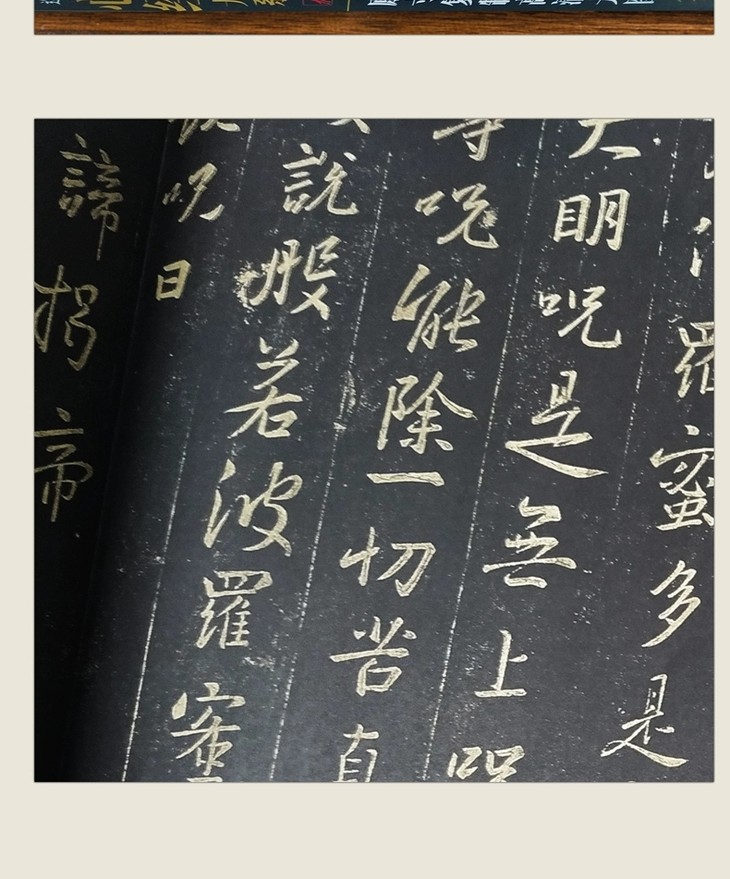 羅蜜多是
大明呪是無上呪
等呪能除一切苦真
說般若波羅蜜
呪曰
諦揭帝